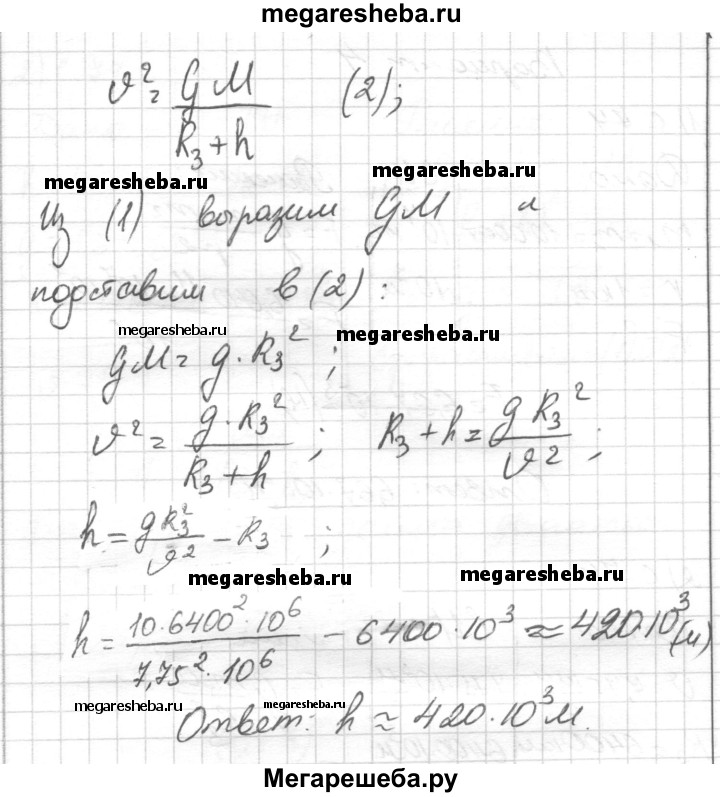 megaresheba.ru
υ² = GM / (R₃ + h) (2);
megaresheba.ru megaresheba.ru
Из (1) выразим GM и
подставим в (2):
megaresheba.ru megaresheba.ru
GM = g · R₃²;
υ² = g · R₃² / (R₃ + h); R₃ + h = g R₃² / υ²;
h = g R₃² / υ² − R₃;
megaresheba.ru megaresheba.ru
h = 10 · 6400² · 10⁶ / 7,75² · 10⁶ − 6400 · 10³ ≈ 420 · 10³ (м)
megaresheba.ru megaresheba.ru
Ответ: h ≈ 420 · 10³ м.
Мегарешеба.ру